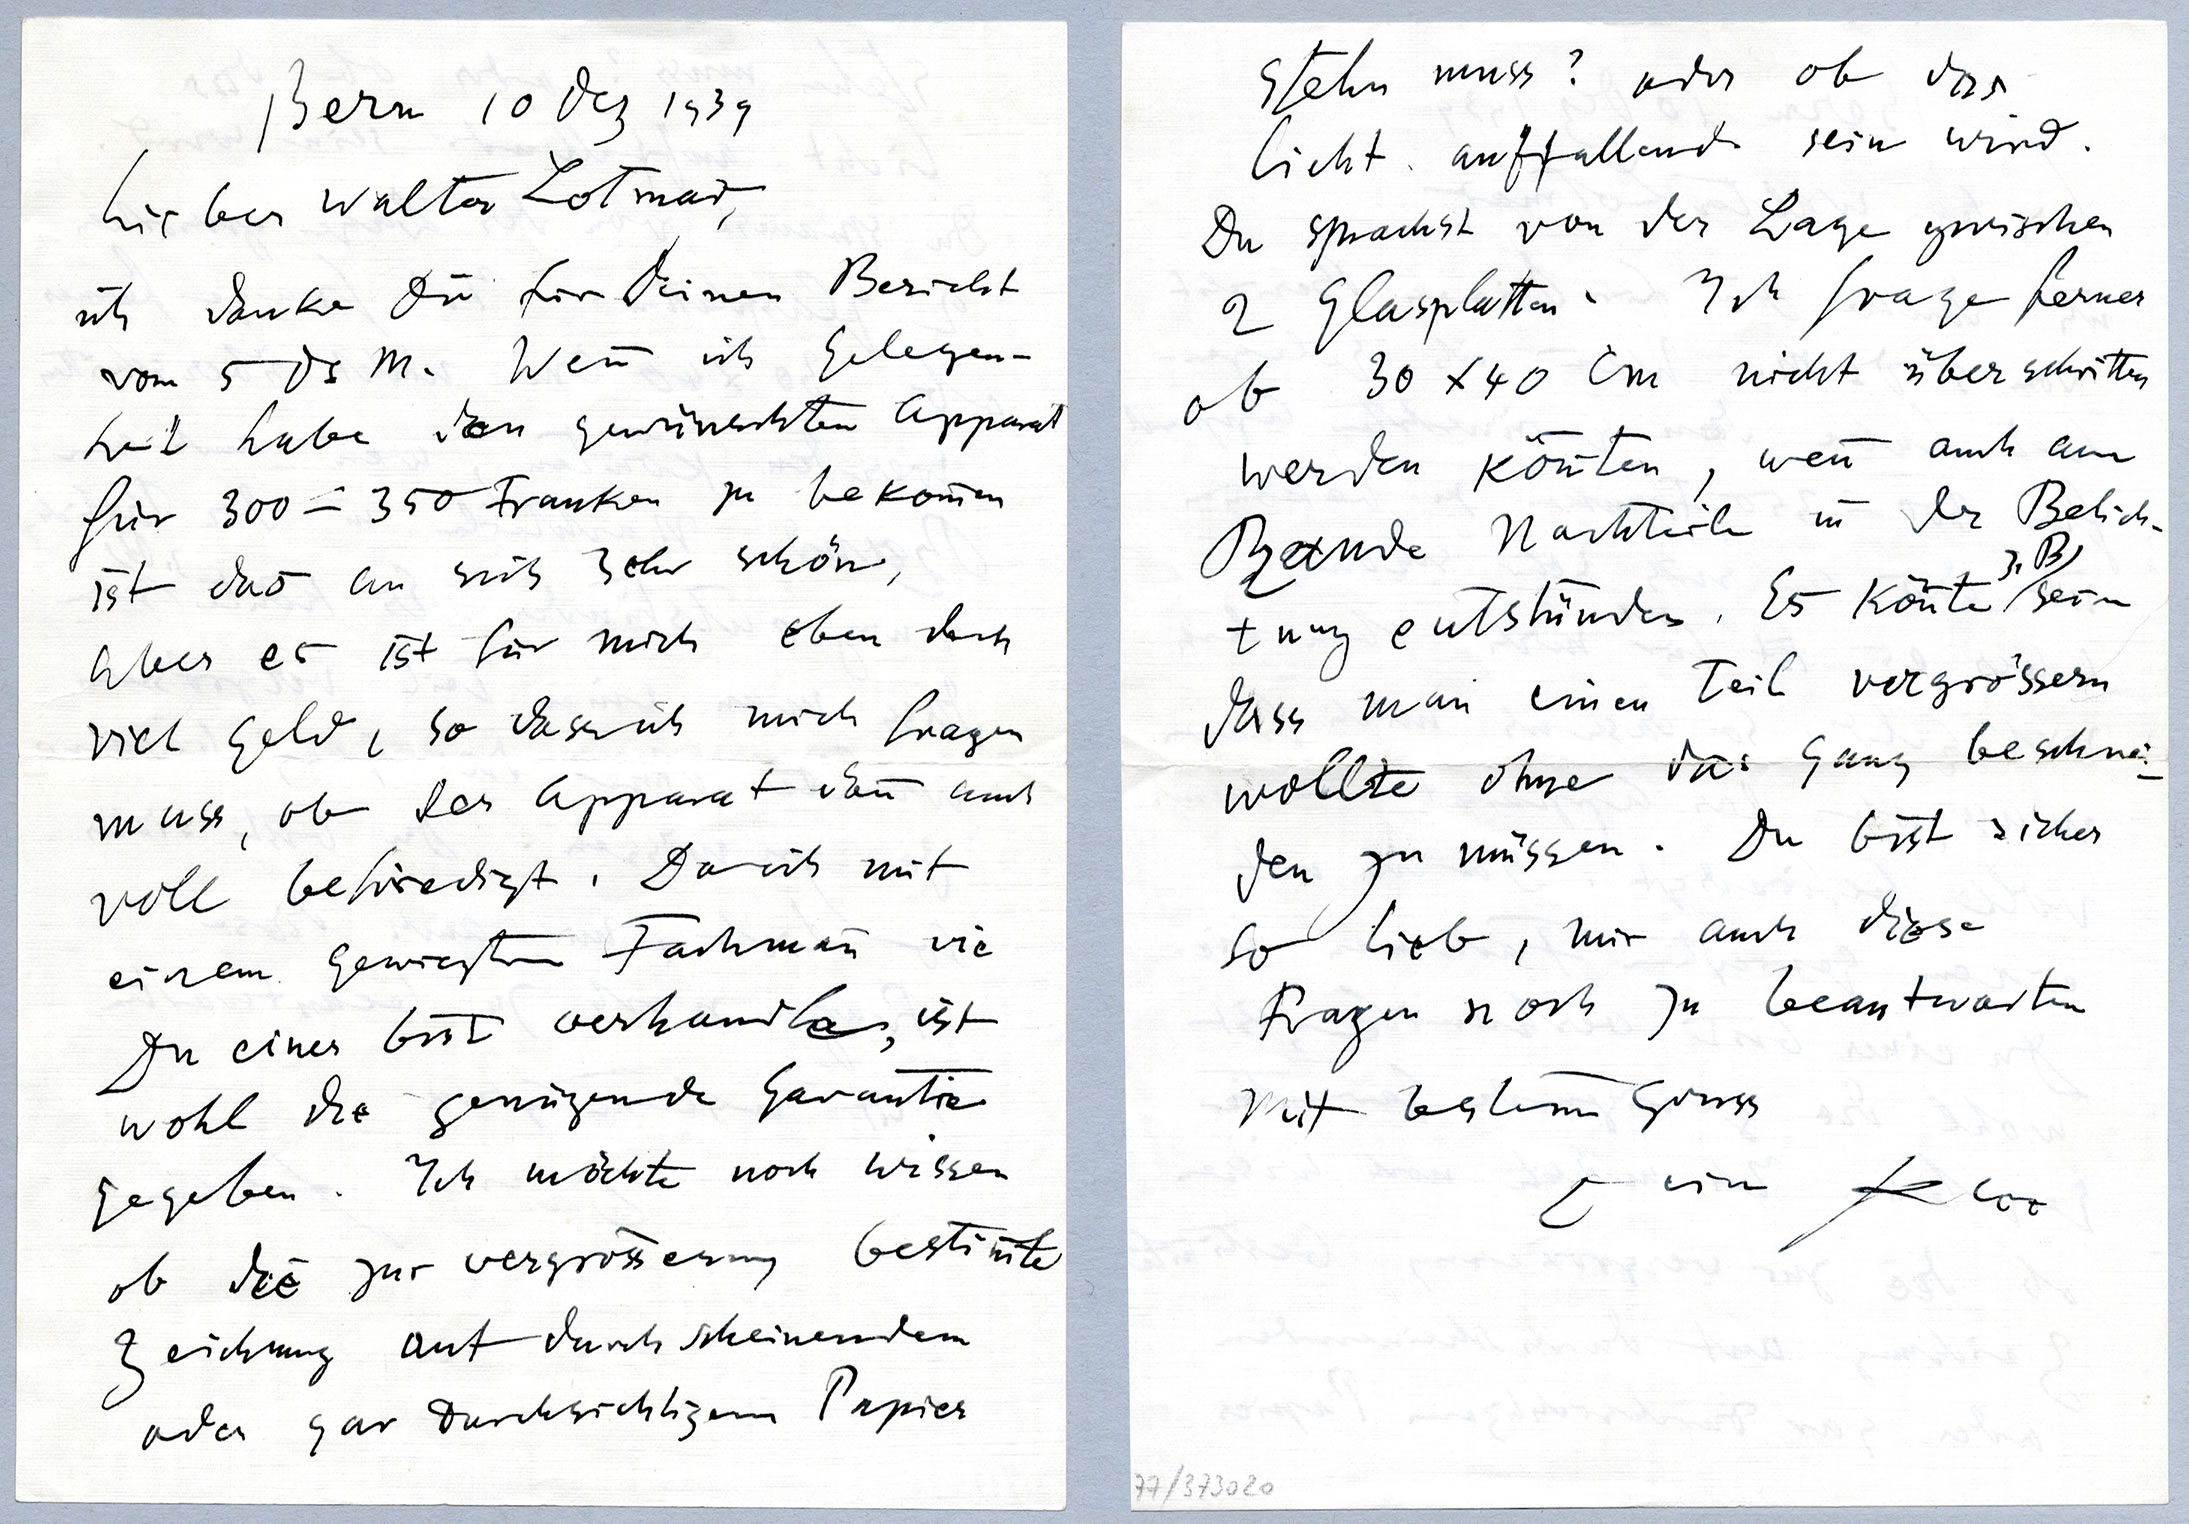 Bern 10 Dez 1939
Lieber Walter Lotmar,
ich danke Dir für Deinen Bericht
vom 5 ds M. Weñ ich Gelegen-
heit habe den gewünschten Apparat
für 300 – 350 Franken zu bekom̄en
ist das an sich sehr schön,
aber es ist für mich eben doch
viel Geld, so dass ich mich fragen
muss, ob der Apparat dañ auch
voll befriedigt. Da ich mit
einem gewiegten Fachmañ wie
Du einer bist verhandle, ist
wohl die genügende Garantie
gegeben. Ich möchte noch wissen
ob die zur Vergrösserung bestim̄te
Zeichnung auf durchscheinendem
oder gar durchsichtigem Papier
stehn muss? oder ob das
Licht auffallend sein wird.
Du sprachst von der Lage zwischen
2 Glasplatten. Ich frage ferner
ob 30 x 40 cm nicht überschritten
werden köñten, weñ auch am
Rande Nachteile in der Belich-
tung entstünden. Es köñte z. B. sein
dass man einen Teil vergrössern
wollte ohne das Ganz beschnei-
den zu müssen. Du bist sicher
so lieb, mir auch diese
Fragen noch zu beantworten
Mit bestem Gruss
Dein Klee
77/373020